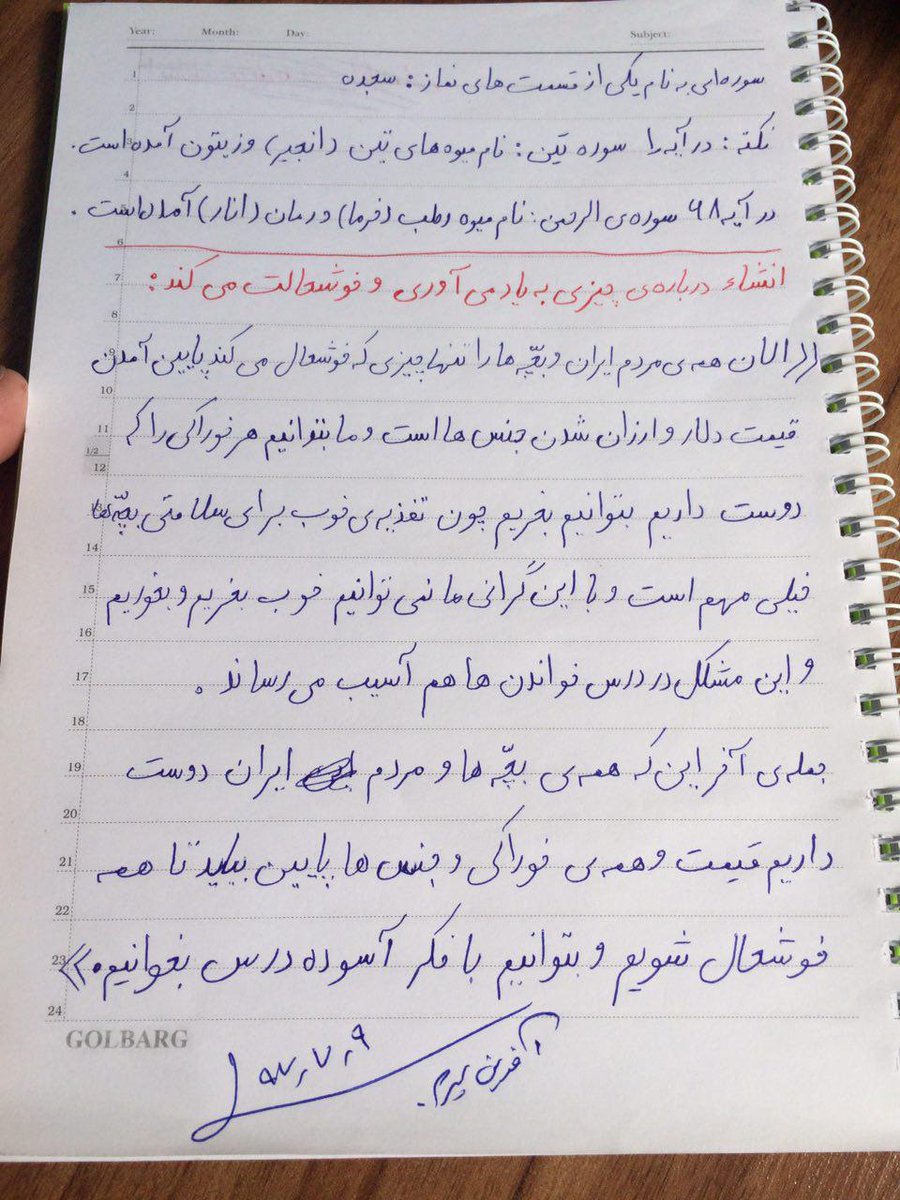 Year: Month: Day: Subject:
سوره‌ای به نام یکی از قسمت های نماز: سجده
نکته: در آیه ۱ سوره تین: نام میوه های تین (انجیر) و زیتون آمده است.
در آیه ۶۸ سوره‌ی الرحمن: نام میوه رطب (خرما) و رمان (انار) آمده است.
انشاء درباره‌ی چیزی به یاد می آوری و خوشحالت می کند:
((الان همه ی مردم ایران و بچّه ها را تنها چیزی که خوشحال می کند پایین آمدن
قیمت دلار و ارزان شدن جنس ها است و ما بتوانیم هر خوراکی را که
دوست داریم بتوانیم بخریم چون تغذیه ی خوب برای سلامتی بچّه ها
خیلی مهم است و با این گرانی ما نمی توانیم خوب بخریم و بخوریم
و این مشکل در درس خواندن ها هم آسیب می رساند.
جمله ی آخر این که همه ی بچّه ها و مردم ایران دوست
داریم قیمت و همه ی خوراکی و جنس ها پایین بیاید تا همه
خوشحال شویم و بتوانیم با فکر آسوده درس بخوانیم.))
1
2
3
4
5
6
7
8
9
10
11
1/2
12
13
14
15
16
17
18
19
20
21
22
23
24
GOLBARG
آفرین پسرم.
۹۷٫۷٫۹